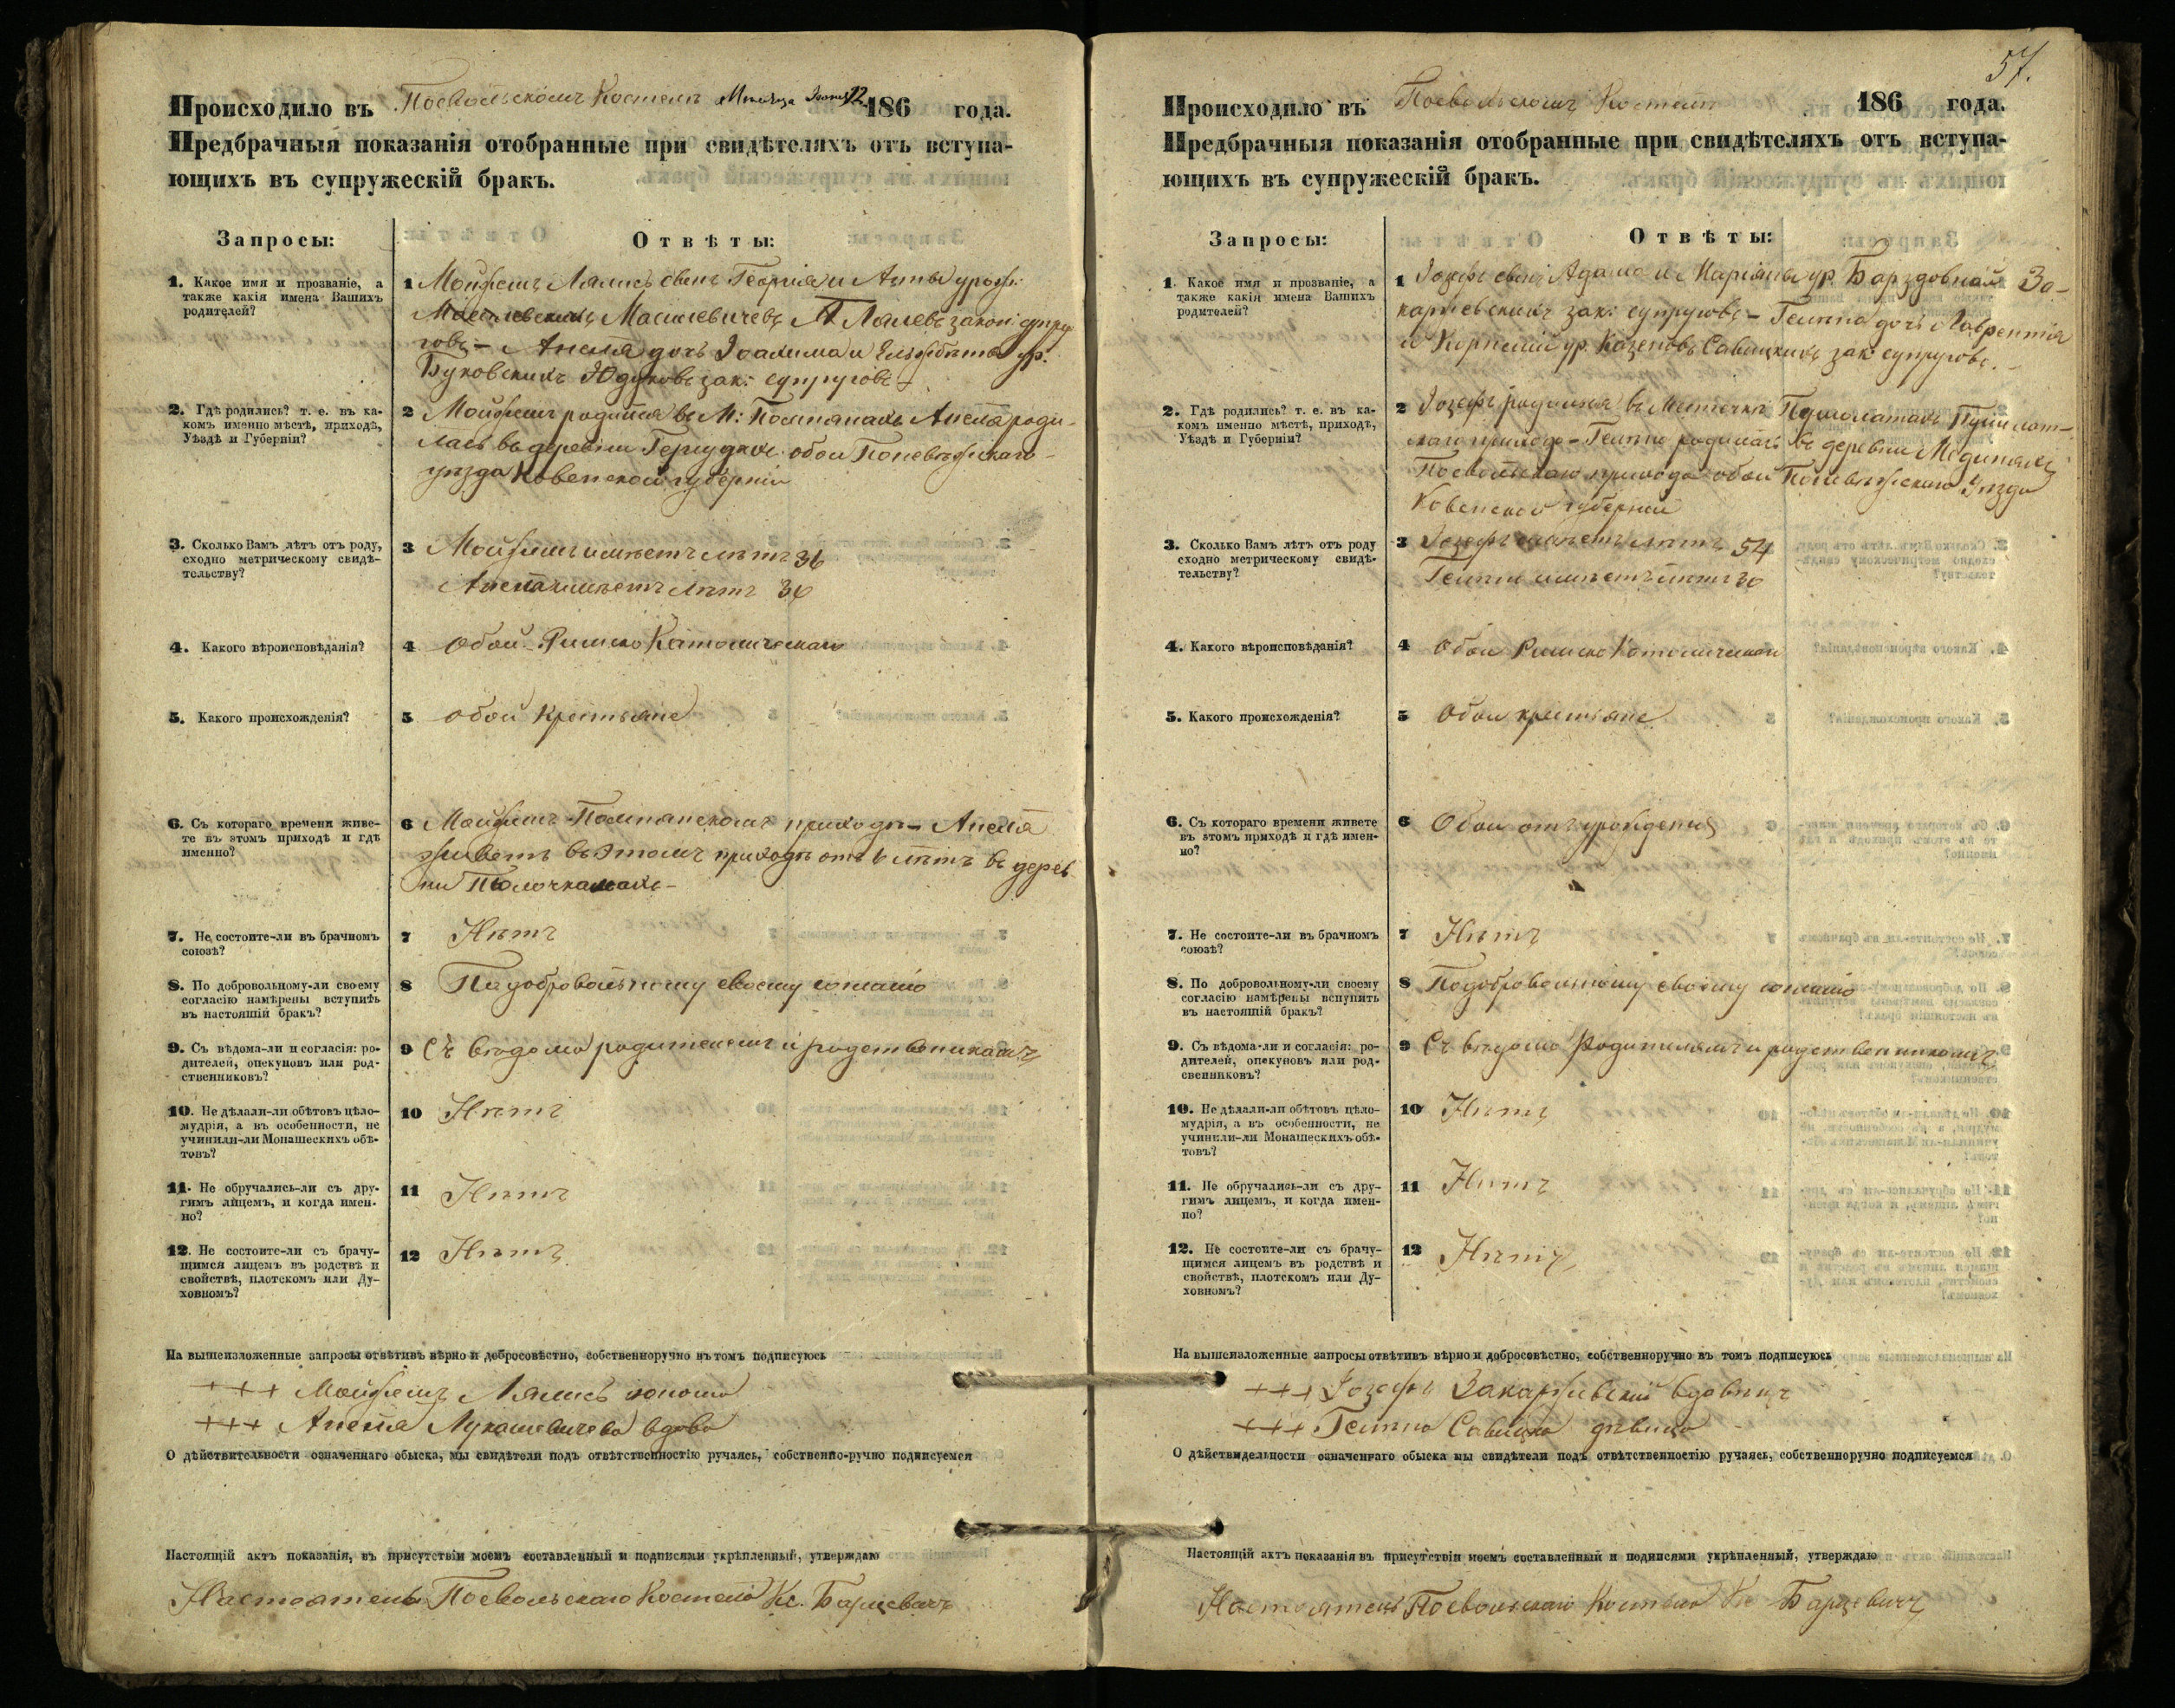 Происходило въ Поевольскомъ Костелѣ Мѣсяца 12 186 года.
Предбрачныя показанія отобранные при свидѣтеляхъ отъ вступа-
ющихъ въ супружескій бракъ.
Запросы:
Отвѣты:
1. Какое имя и прозваніе, а
также какія имена Вашихъ
родителей?
1 Мойжешъ Лялисъ сынъ Георгія и Анны урож:
Масилевичевъ Лялевъ закон: супру
говъ – Анеля дочь Іоахима и Ельжбеты ур.
Буковскихъ зак: супруговъ –
2. Гдѣ родились? т. е. въ ка-
комъ именно мѣстѣ, приходѣ,
Уѣздѣ и Губерніи?
2 Мойжешъ родился въ М: Помпянахъ Анеля роди-
лась въ деревни обои Поневѣжскаго
уѣзда Ковенской губерніи
3. Сколько Вамъ лѣтъ отъ роду,
сходно метрическому свидѣ-
тельству?
3 Мойжешъ имѣетъ лѣтъ 36
Анеля имѣетъ лѣтъ 36
4. Какого вѣроисповѣданія?
4 Обои Римско Католическаго
5. Какого происхожденія?
5 Обои Крестьяне
6. Съ котораго времени живе-
те въ этомъ приходѣ и гдѣ
именно?
6 Мойжешъ Помпянскомъ приходѣ – Анеля
живетъ въ этомъ приходѣ отъ 6 лѣтъ въ дерев
ни
7. Не состоите-ли въ брачномъ
союзѣ?
7 Нѣтъ
8. По добровольному-ли своему
согласію намѣрены вступить
въ настоящій бракъ?
8 По добровольному своему согласію
9. Съ вѣдома-ли и согласія: ро-
дителей, опекуновъ или род-
ственниковъ?
9 Съ вѣдома родителемъ и родственникамъ
10. Не дѣлали-ли обѣтовъ цѣло-
мудрія, а въ особенности, не
учинили-ли Монашескихъ обѣ-
товъ?
10 Нѣтъ
11. Не обручались-ли съ дру-
гимъ лицемъ, и когда имен-
но?
11 Нѣтъ
12. Не состоите-ли съ брачу-
щимся лицемъ въ родствѣ и
свойствѣ, плотскомъ или Ду-
ховномъ?
12 Нѣтъ
На вышеизложенные запросы отвѣтивъ вѣрно и добросовѣстно, собственноручно въ томъ подписуюсь
+++ Мойжешъ Лялисъ юноша
+++ Анеля Лукашевичева вдова
О дѣйствительности означеннаго обыска, мы свидѣтели подъ отвѣтственностію ручаясь, собственно-ручно подписуемся
Настоящій актъ показанія, въ присутствіи моемъ составленный и подписями укрѣпленный, утверждаю
Настоятель Поевольскаго Костела Кс. Барцевичъ
57.
Происходило въ Поевольскомъ Костелѣ 186 года.
Предбрачныя показанія отобранные при свидѣтеляхъ отъ вступа-
ющихъ въ супружескій бракъ.
Запросы:
Отвѣты:
1. Какое имя и прозваніе, а
также какія имена Вашихъ
родителей?
1 Іозефъ сынъ Адама и Маріяны ур. Барздовной За-
каржевскихъ зак: супруговъ – Гелена дочь Лаврентія
и Корнеліи ур. Савицкихъ зак: супруговъ. –
2. Гдѣ родились? т. е. въ ка-
комъ именно мѣстѣ, приходѣ,
Уѣздѣ и Губерніи?
2 Іозефъ родился въ Мѣстечкѣ Пушолатахъ Пушолат-
скаго прихода – Гелена родилась въ деревни
Поевольскаго прихода обои Поневѣжскаго Уѣзда
Ковенской губерніи
3. Сколько Вамъ лѣтъ отъ роду
сходно метрическому свидѣ-
тельству?
3 Іозефъ имѣетъ лѣтъ 54
Гелена имѣетъ лѣтъ 30
4. Какого вѣроисповѣданія?
4 Обои Римско Католическаго
5. Какого происхожденія?
5 Обои крестьяне
6. Съ котораго времени живете
въ этомъ приходѣ и гдѣ имен-
но?
6 Обои отъ урожденія
7. Не состоите-ли въ брачномъ
союзѣ?
7 Нѣтъ
8. По добровольному-ли своему
согласію намѣрены вспупить
въ настоящій бракъ?
8 По добровольному своему согласію
9. Съ вѣдома-ли и согласія: ро-
дителей, опекуновъ или род-
свенниковъ?
9 Съ вѣдома Родителямъ и родственникамъ
10. Не дѣлали-ли обѣтовъ цѣло-
мудрія, а въ особенности, не
учинили-ли Монашескихъ обѣ-
товъ?
10 Нѣтъ
11. Не обручались-ли съ дру-
гимъ лицемъ, и когда имен-
но?
11 Нѣтъ
12. Не состоите-ли съ брачу-
щимся лицемъ въ родствѣ и
свойствѣ, плотскомъ или Ду-
ховномъ?
12 Нѣтъ
На вышеизложенные запросы отвѣтивъ вѣрно и добросовѣстно, собственноручно въ томъ подписуюсь
+++ Іозефъ Закаржевскій вдовецъ
+++ Гелена Савицка дѣвица
О дѣйствидельности означеннаго обыска мы свидѣтели подъ отвѣтственностію ручаясь, собственноручно подписуемся
Настоящій актъ показанія въ присутствіи моемъ составленный и подписями укрѣпленный, утверждаю
Настоятель Поевольскаго Костела Кс Барцевичъ